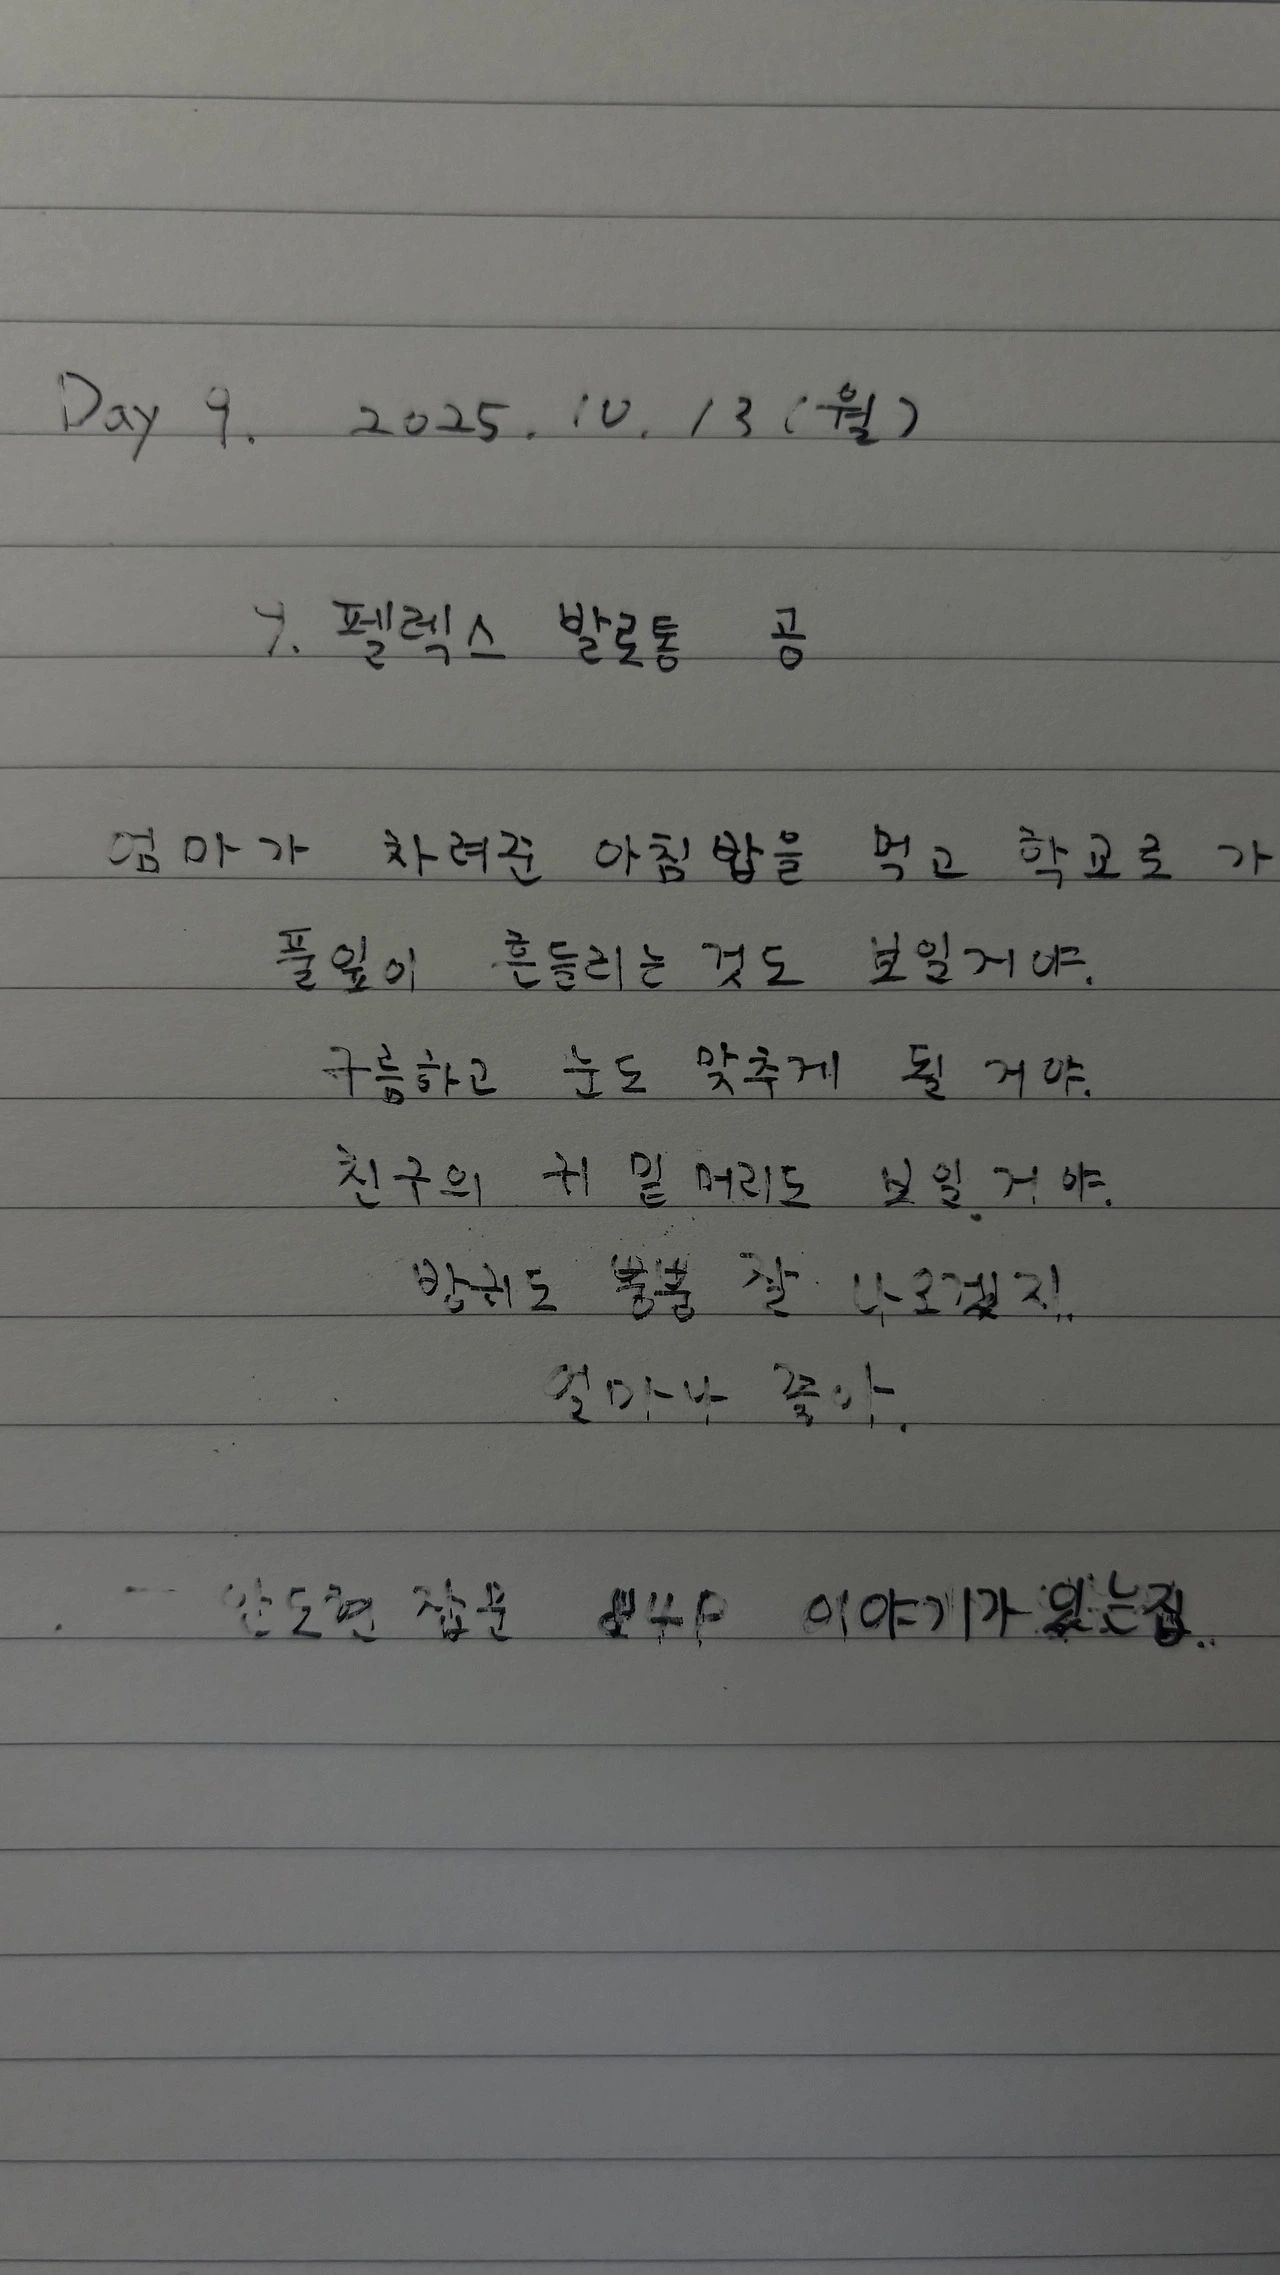 Day 9. 2025. 10. 13 (월)
9. 펠렉스 발로통 공
엄마가 차려준 아침밥을 먹고 학교로 가
풀잎이 흔들리는 것도 보일거야.
구름하고 눈도 맞추게 될 거야.
친구의 귀 밑 머리도 보일 거야.
방귀도 뽕뽕 잘 나오겠지.
얼마나 좋아.
- 안도현 잡문 이야기가 있는 집.